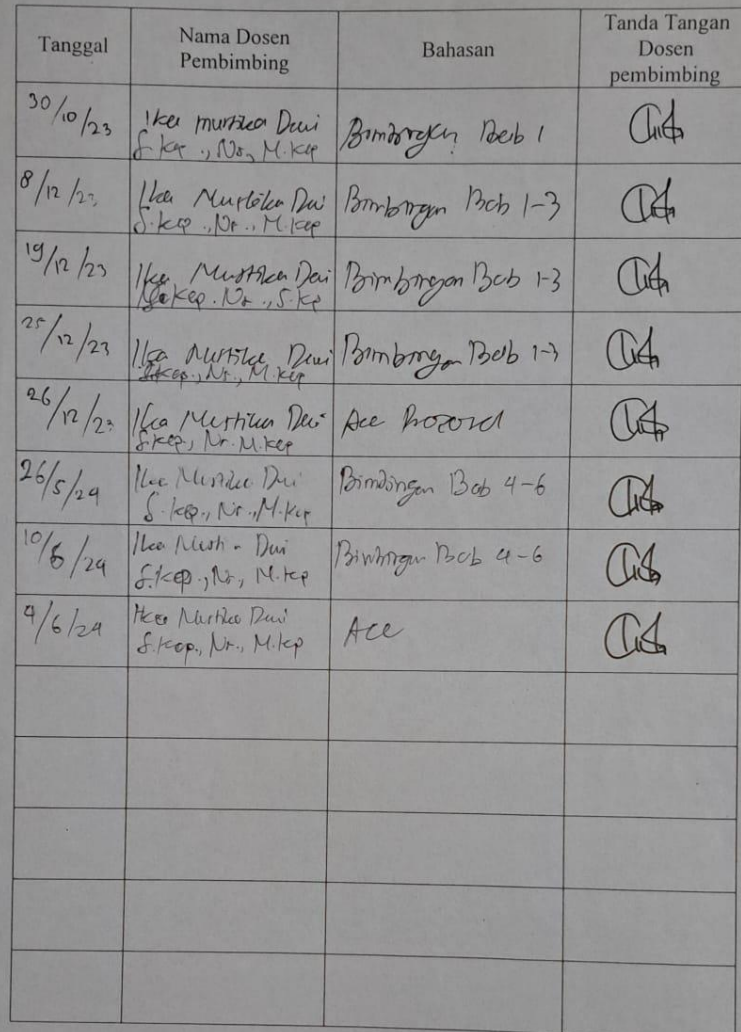 Tanggal
Nama Dosen
Pembimbing
Bahasan
Tanda Tangan
Dosen
pembimbing
30/10/23
Ika Mustika Dewi
S.Kep., Ns., M.Kep
Bimbingan Bab 1
8/12/23
Ika Mustika Dewi
S.Kep., Ns., M.Kep
Bimbingan Bab 1-3
19/12/23
Ika Mustika Dewi
Ns., S.Kep
Bimbingan Bab 1-3
25/12/23
Ika Mustika Dewi
S.Kep., Ns., M.Kep
Bimbingan Bab 1-3
26/12/23
Ika Mustika Dewi
S.Kep, Ns. M.Kep
Acc
26/5/24
Ika Mustika Dewi
S.Kep., Ns., M.Kep
Bimbingan Bab 4-6
Ika Dewi
S.Kep., Ns, M.Kep
Bimbingan Bab 4-6
4/6/24
Ika Mustika Dewi
S.Kep., Ns., M.Kep
Acc